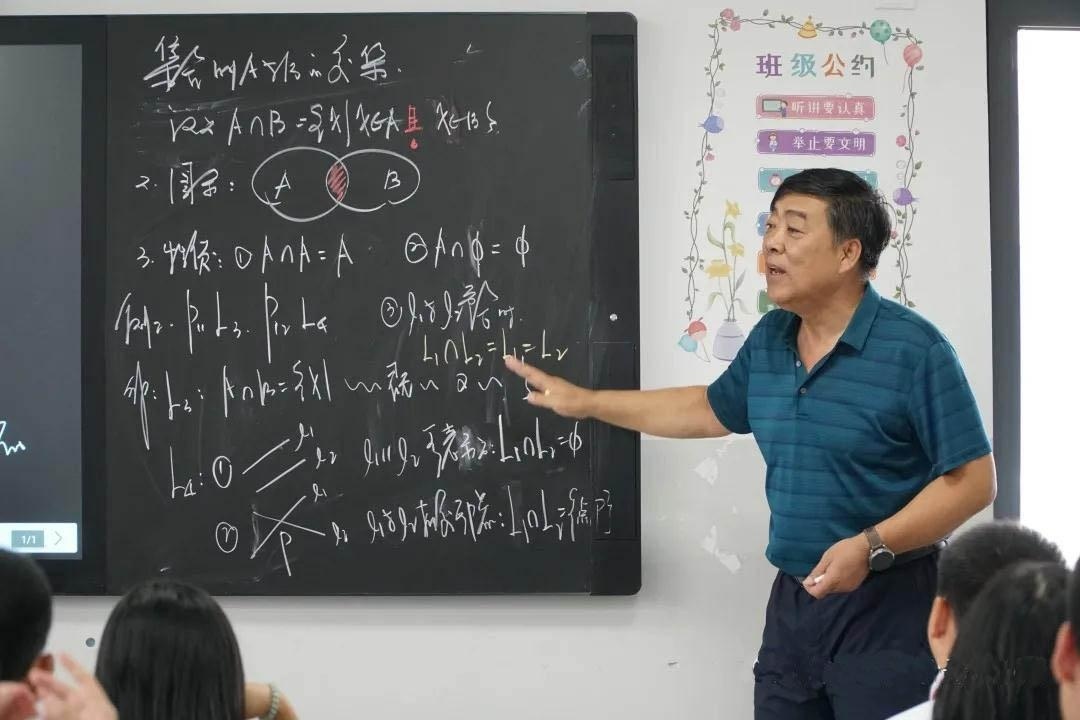 集合A与B的交集.
定义 A∩B={x|x∈A且 x∈B}.
2. 图示: A B
3. 性质: ① A∩A=A ② A∩φ=φ
例2. P11 L3. P12 L4
③ l1与l2重合时.
L1∩L2=L1=L2
解: L3: A∩B={x|
L4: ① l1 l2 l1∥l2 可表示为: L1∩L2=φ
② l1 l2 P l1与l2相交于点: L1∩L2={点P}
1/1
班级公约
听讲要认真
举止要文明